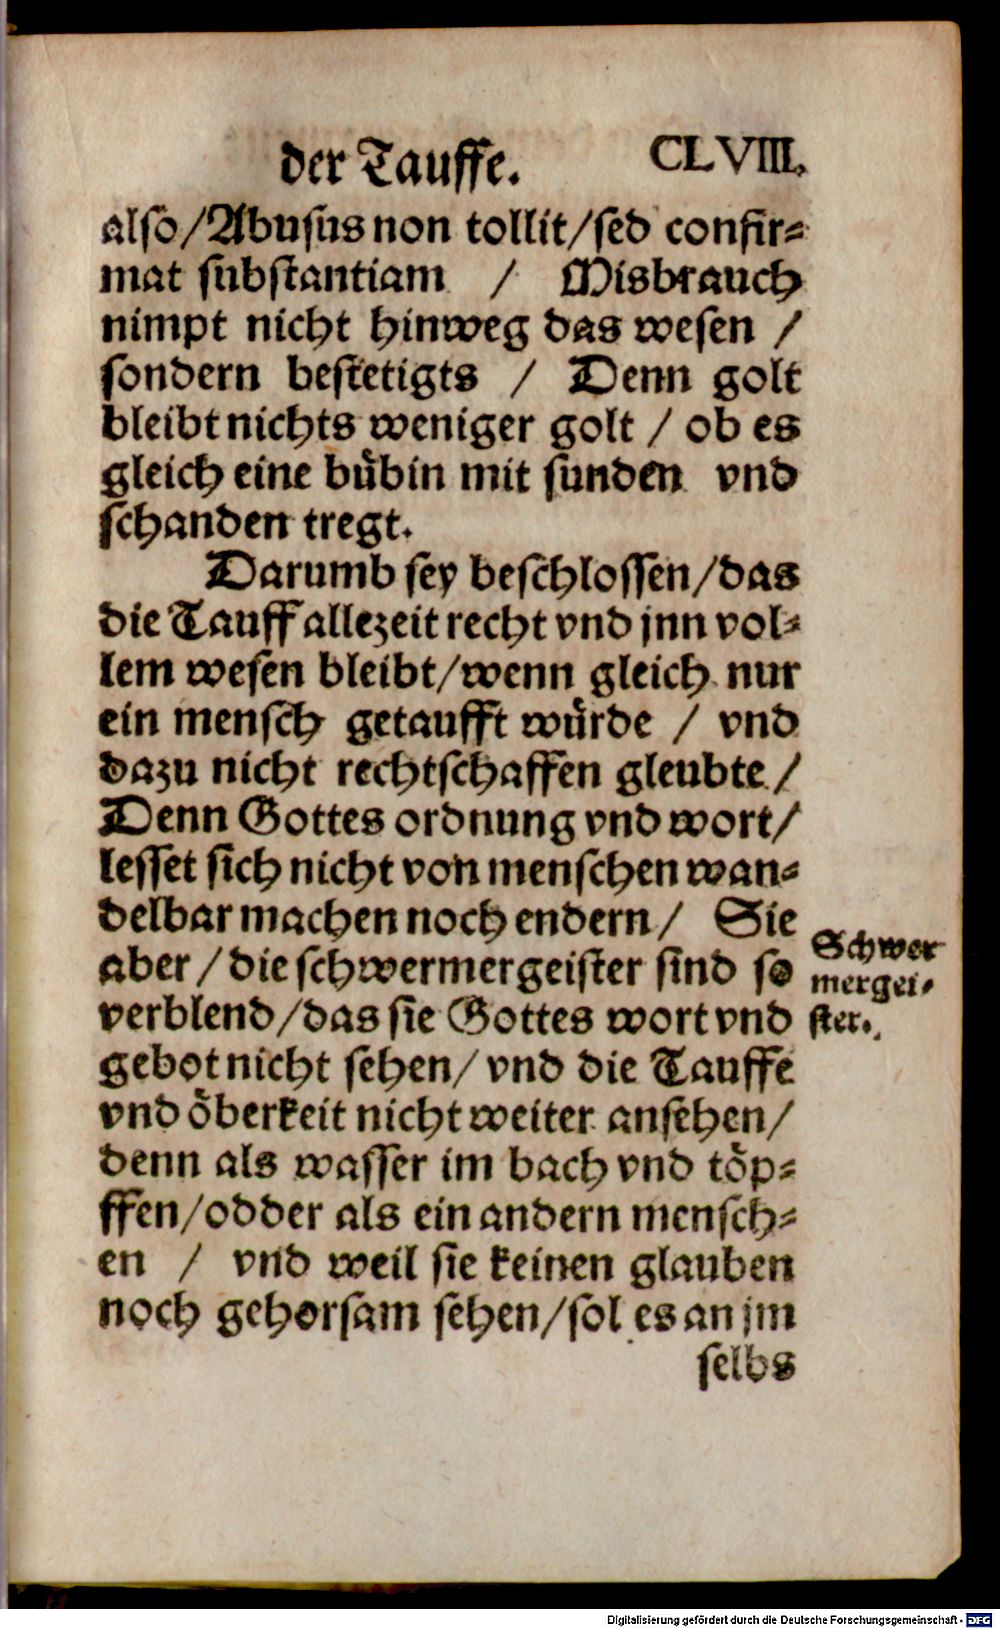 der Tauffe. CLVIII.
also/Abusus non tollit/sed confir⸗
mat substantiam / Misbrauch
nimpt nicht hinweg das wesen /
sondern bestetigts / Denn golt
bleibt nichts weniger golt / ob es
gleich eine bübin mit sunden vnd
schanden tregt.
Darumb sey beschlossen/das
die Tauff allezeit recht vnd jnn vol⸗
lem wesen bleibt/wenn gleich nur
ein mensch getaufft würde / vnd
dazu nicht rechtschaffen gleubte/
Denn Gottes ordnung vnd wort/
lesset sich nicht von menschen wan⸗
delbar machen noch endern/ Sie
aber/die schwermergeister sind so
verblend/das sie Gottes wort vnd
gebot nicht sehen/ vnd die Tauffe
vnd öberkeit nicht weiter ansehen/
denn als wasser im bach vnd töp⸗
ffen/odder als ein andern mensch⸗
en / vnd weil sie keinen glauben
noch gehorsam sehen/sol es an jm
selbs
Schwer
mergei⸗
ster.
Digitalisierung gefördert durch die Deutsche Forschungsgemeinschaft - DFG